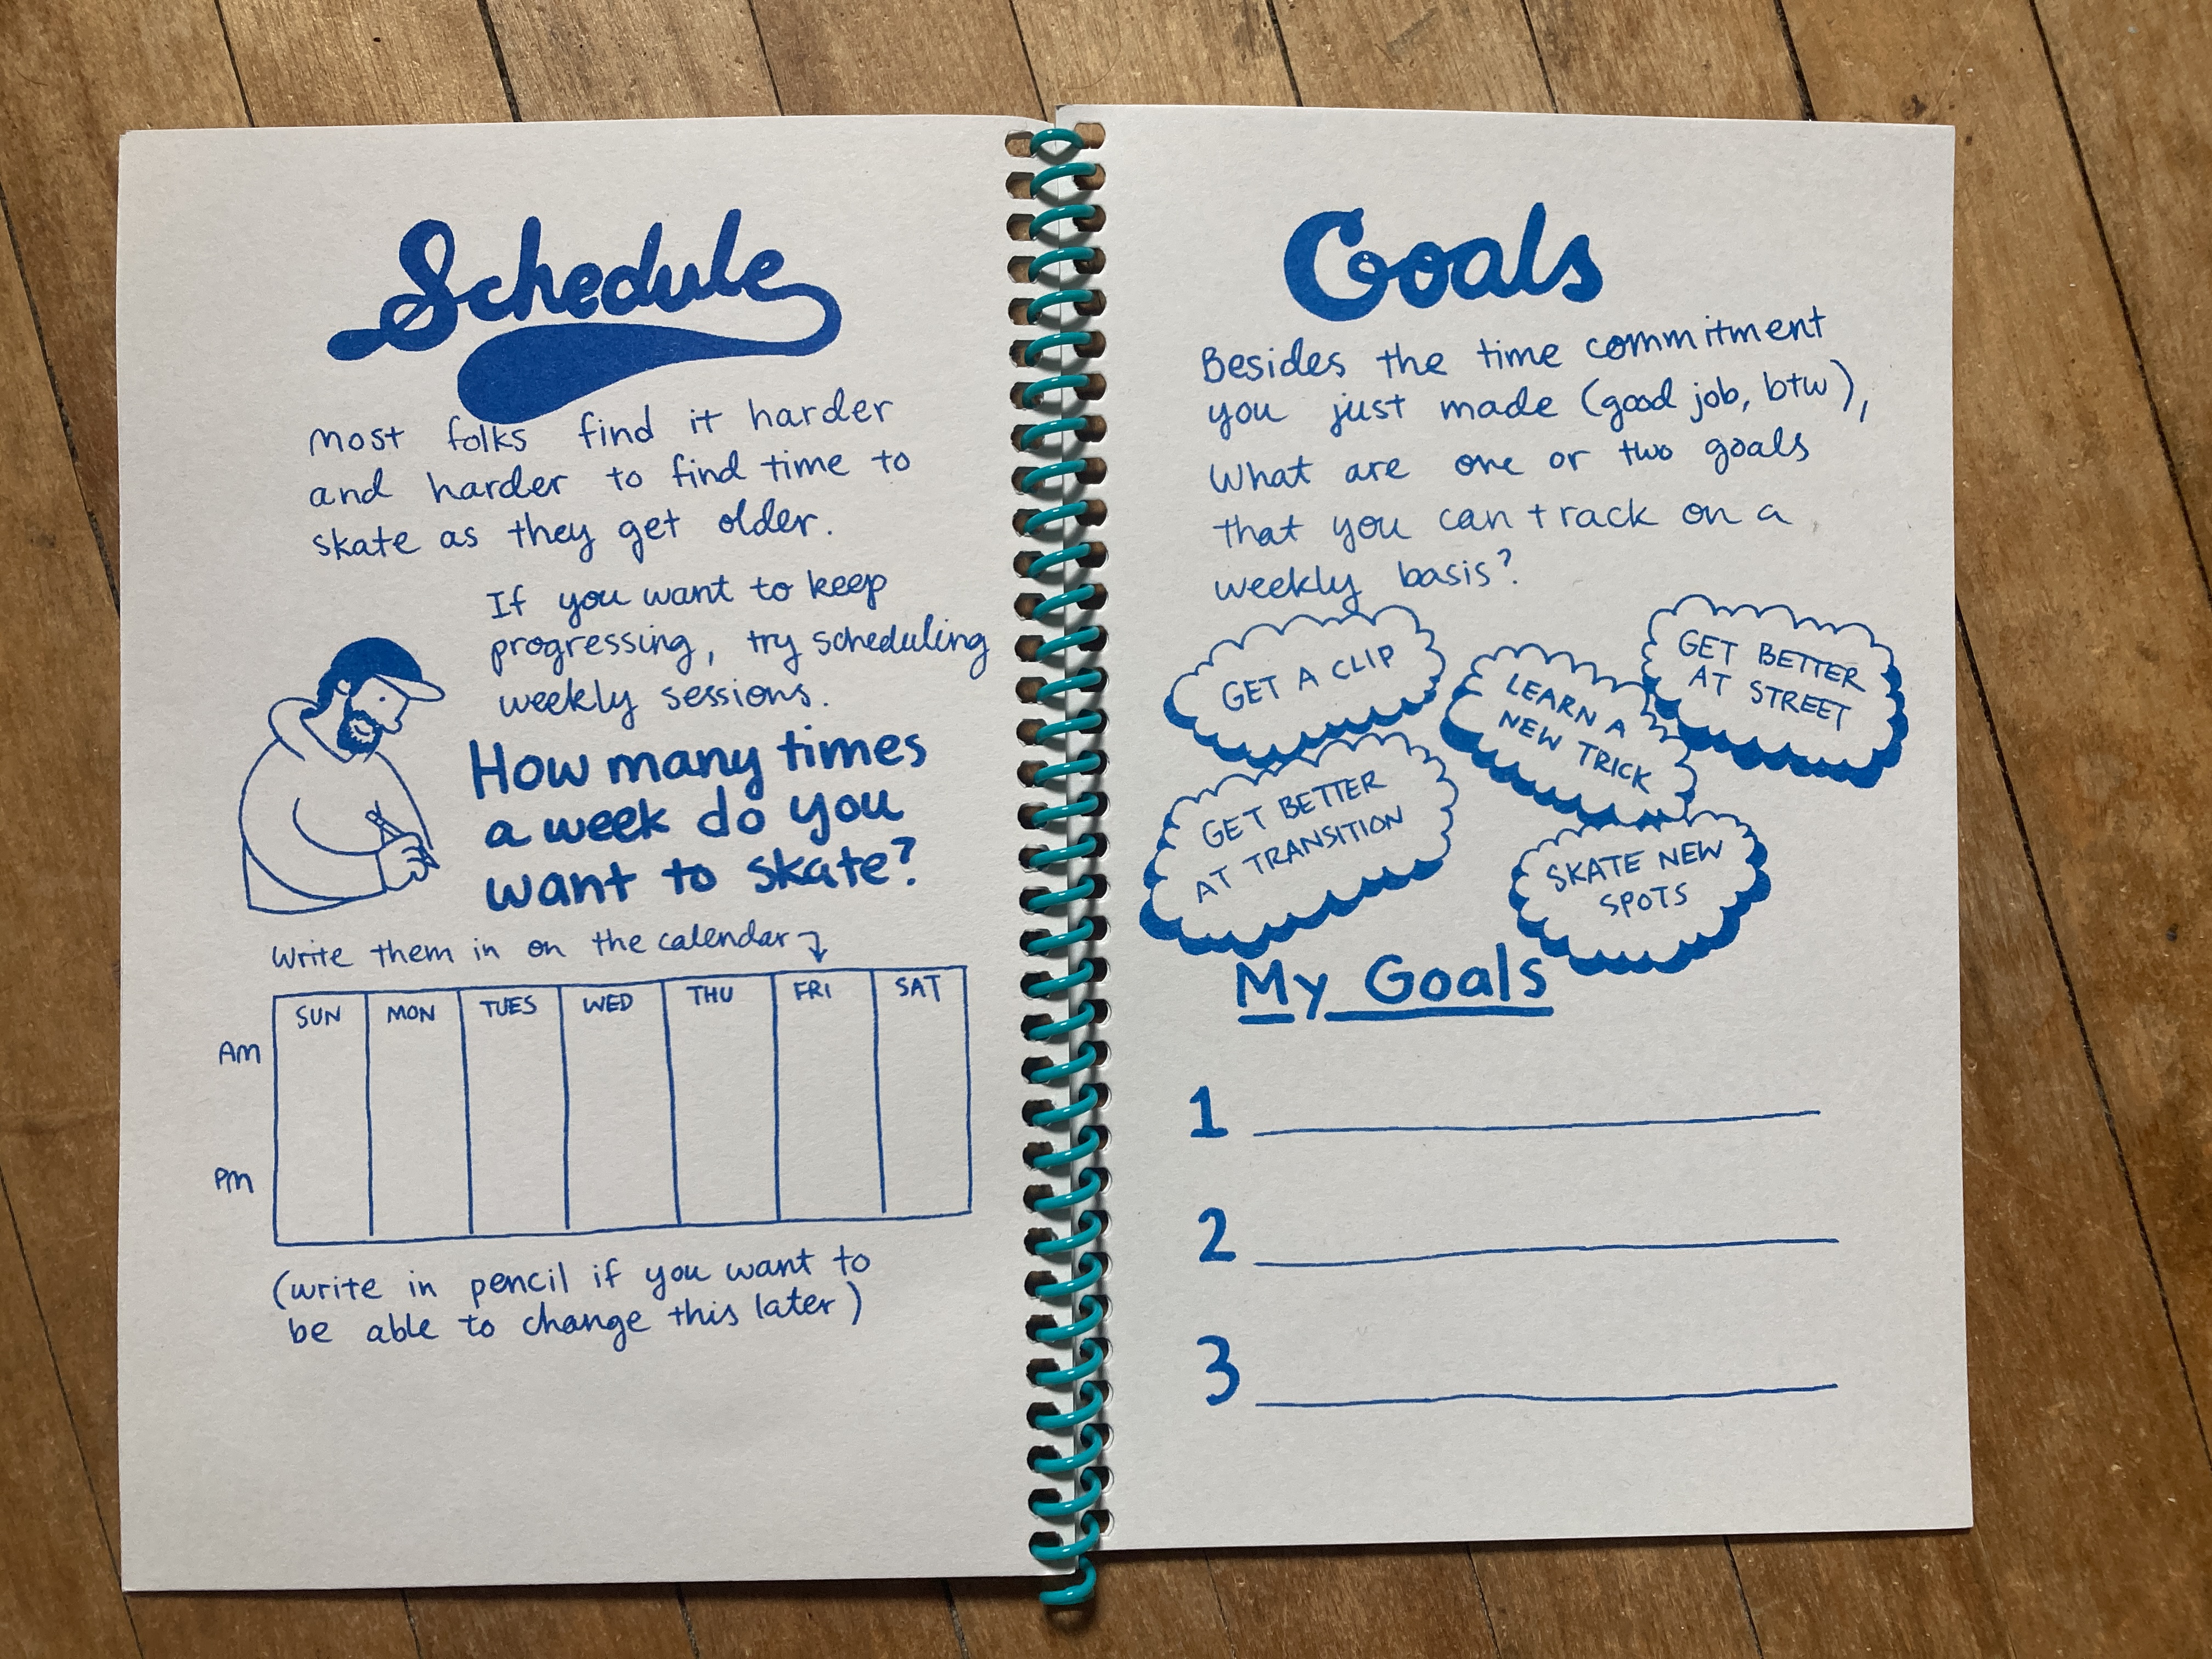 Schedule
most folks find it harder
and harder to find time to
skate as they get older.
If you want to keep
progressing, try scheduling
weekly sessions.
How many times
a week do you
want to skate?
Write them in on the calendar
SUN MON TUES WED THU FRI SAT
AM
PM
(write in pencil if you want to
be able to change this later)
Goals
Besides the time commitment
you just made (good job, btw),
What are one or two goals
that you can track on a
weekly basis?
GET A CLIP
LEARN A
NEW TRICK
GET BETTER
AT STREET
GET BETTER
AT TRANSITION
SKATE NEW
SPOTS
My Goals
1
2
3